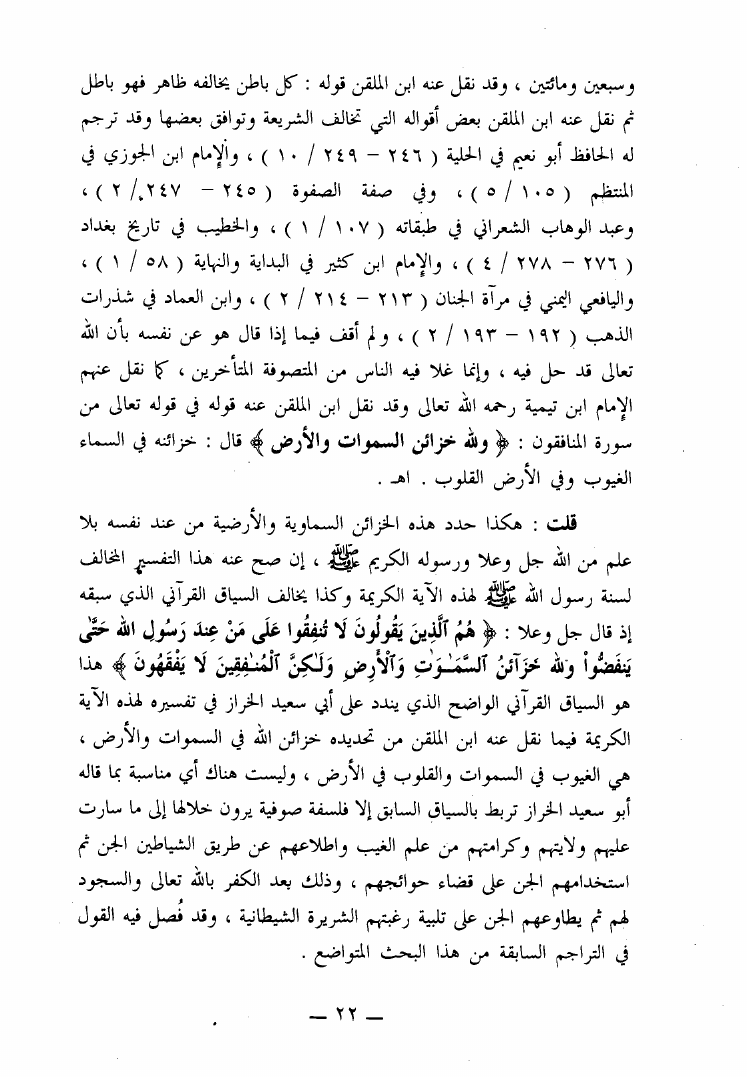 وسبعين ومائتين ، وقد نقل عنه ابن الملقن قوله : كل باطن يخالفه ظاهر فهو باطل
ثم نقل عنه ابن الملقن بعض أقواله التي تخالف الشريعة وتوافق بعضها وقد ترجم
له الحافظ أبو نعيم في الحلية ( ٢٤٦ – ٢٤٩ / ١٠ ) ، والإمام ابن الجوزي في
المنتظم ( ١٠٥ / ٥ ) ، وفي صفة الصفوة ( ٢٤٥ – ٢٤٧ / ٢ ) ،
وعبد الوهاب الشعراني في طبقاته ( ١٠٧ / ١ ) ، والخطيب في تاريخ بغداد
( ٢٧٦ – ٢٧٨ / ٤ ) ، والإمام ابن كثير في البداية والنهاية ( ٥٨ / ١ ) ،
واليافعي اليمني في مرآة الجنان ( ٢١٣ – ٢١٤ / ٢ ) ، وابن العماد في شذرات
الذهب ( ١٩٢ – ١٩٣ / ٢ ) ، ولم أقف فيما إذا قال هو عن نفسه بأن الله
تعالى قد حل فيه ، وإنما غلا فيه الناس من المتصوفة المتأخرين ، كما نقل عنهم
الإمام ابن تيمية رحمه الله تعالى وقد نقل ابن الملقن عنه قوله في قوله تعالى من
سورة المنافقون : ﴿ ولله خزائن السموات والأرض ﴾ قال : خزائنه في السماء
الغيوب وفي الأرض القلوب . اهـ .
قلت : هكذا حدد هذه الخزائن السماوية والأرضية من عند نفسه بلا
علم من الله جل وعلا ورسوله الكريم ﷺ ، إن صح عنه هذا التفسير المخالف
لسنة رسول الله ﷺ لهذه الآية الكريمة وكذا يخالف السياق القرآني الذي سبقه
إذ قال جل وعلا : ﴿ هُمُ ٱلَّذِينَ يَقُولُونَ لَا تُنفِقُوا عَلَى مَنْ عِندَ رَسُولِ الله حَتَّى
يَنفَضُّواْ ولله خَزَآئنُ ٱلسَّمَـٰوَٰتِ وَٱلْأَرضِ وَلَـٰكِنَّ ٱلْمُنَـٰفِقِينَ لَا يَفْقَهُونَ ﴾ هذا
هو السياق القرآني الواضح الذي يندد على أبي سعيد الخراز في تفسيره لهذه الآية
الكريمة فيما نقل عنه ابن الملقن من تحديده خزائن الله في السموات والأرض ،
هي الغيوب في السموات والقلوب في الأرض ، وليست هناك أي مناسبة بما قاله
أبو سعيد الخراز تربط بالسياق السابق إلا فلسفة صوفية يرون خلالها إلى ما سارت
عليهم ولايتهم وكرامتهم من علم الغيب واطلاعهم عن طريق الشياطين الجن ثم
استخدامهم الجن على قضاء حوائجهم ، وذلك بعد الكفر بالله تعالى والسجود
لهم ثم يطاوعهم الجن على تلبية رغبتهم الشريرة الشيطانية ، وقد فُصل فيه القول
في التراجم السابقة من هذا البحث المتواضع .
— ٢٢ —